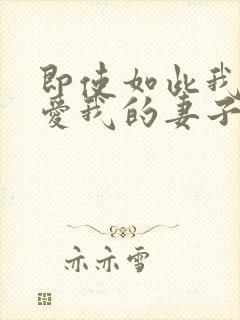 即使如此我
爱我的妻子
亦亦雪